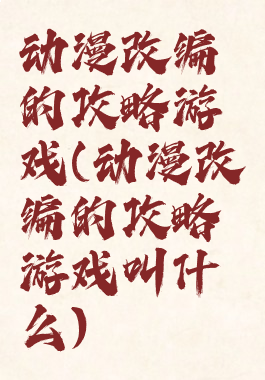 动漫改编
的攻略游
戏(动漫改
编的攻略
游戏叫什
么)